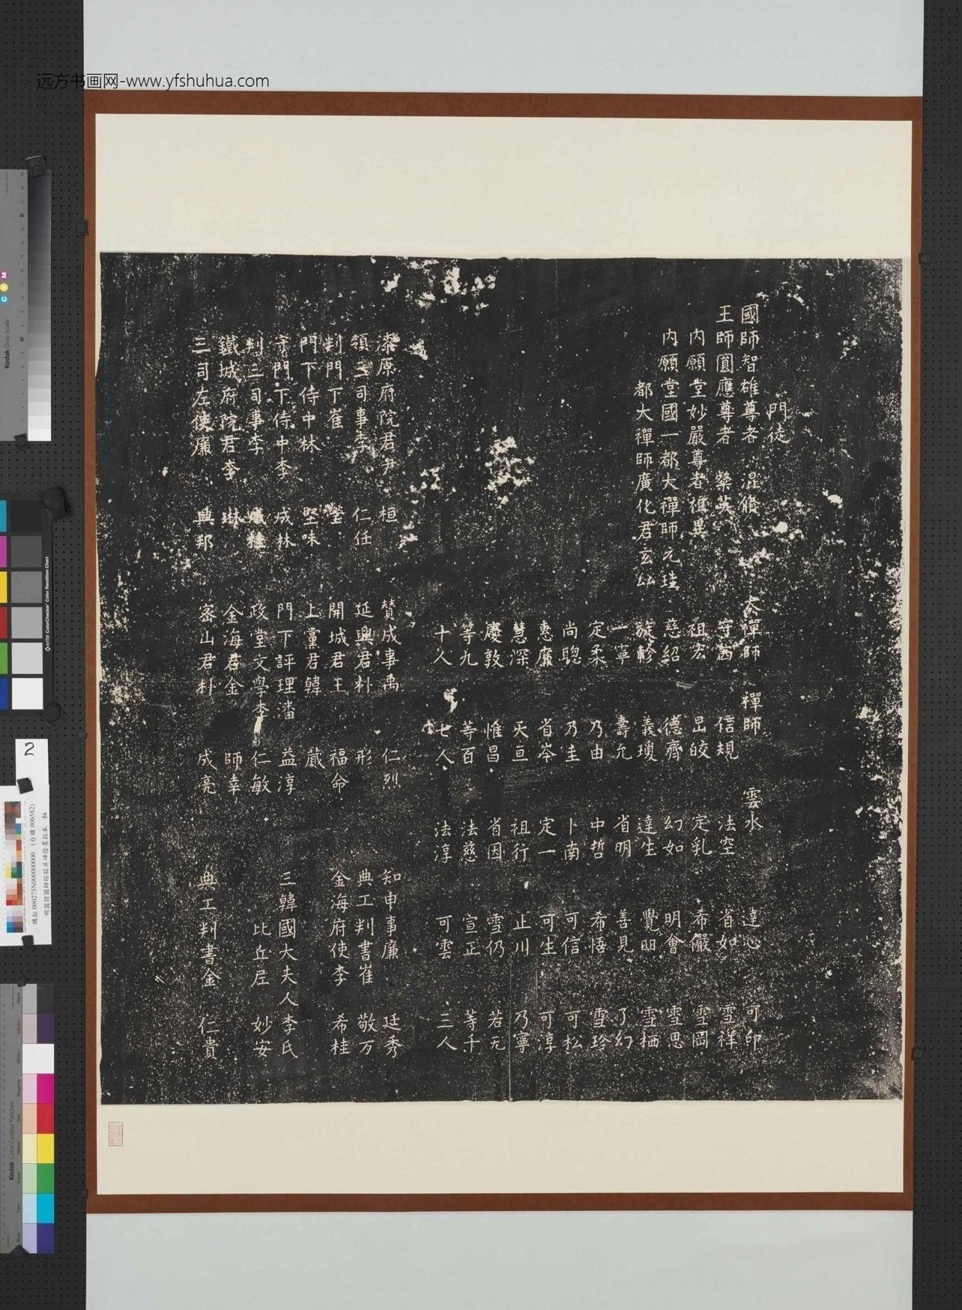 远方书画网-www.yfshuhua.com
門徒
國師智雄尊者 混修
王師圓應尊者 粲英
內願堂妙嚴尊者
內願堂國一都大禪師元珪
都大禪師廣化君玄
大禪師 禪師 雲水 達心 可印
信規 法空 省如 雪祥
祖宏 昌皎 定乳 希儼 雪岡
慈紹 德齊 幻如 明會 雪思
義瓊 達生 覺明 雪栖
一寧 壽允 省明 善見 了幻
定柔 乃由 中哲 希悟 雪珍
尚聰 乃圭 卜南 可信 可松
惠廉 省岑 定一 可生 可淳
慧深 天亘 祖行 止川 乃寧
慶敦 惟昌 省因 雪仍 若元
等九 等百 法慈 宣正 等千
十人 七人 法淳 可雲 三人
漆原府院君尹 桓 贊成事禹 仁烈 知申事廉 廷秀
領三司事李 仁任 延興君朴 形 典工判書崔 敬万
判門下崔 瑩 開城君王 福命 金海府使李 希桂
門下侍中林 堅味 上黨君韓 蕆
守門下侍中李 成林 門下評理潘 益淳 三韓國大夫人李氏
判三司事李 政堂文學李 仁敏 比丘尼 妙安
鐵城府院君李 琳 金海君金 師幸
三司左使廉 興邦 密山君朴 成亮 典工判書金 仁貴
2
Kodak Gray Scale